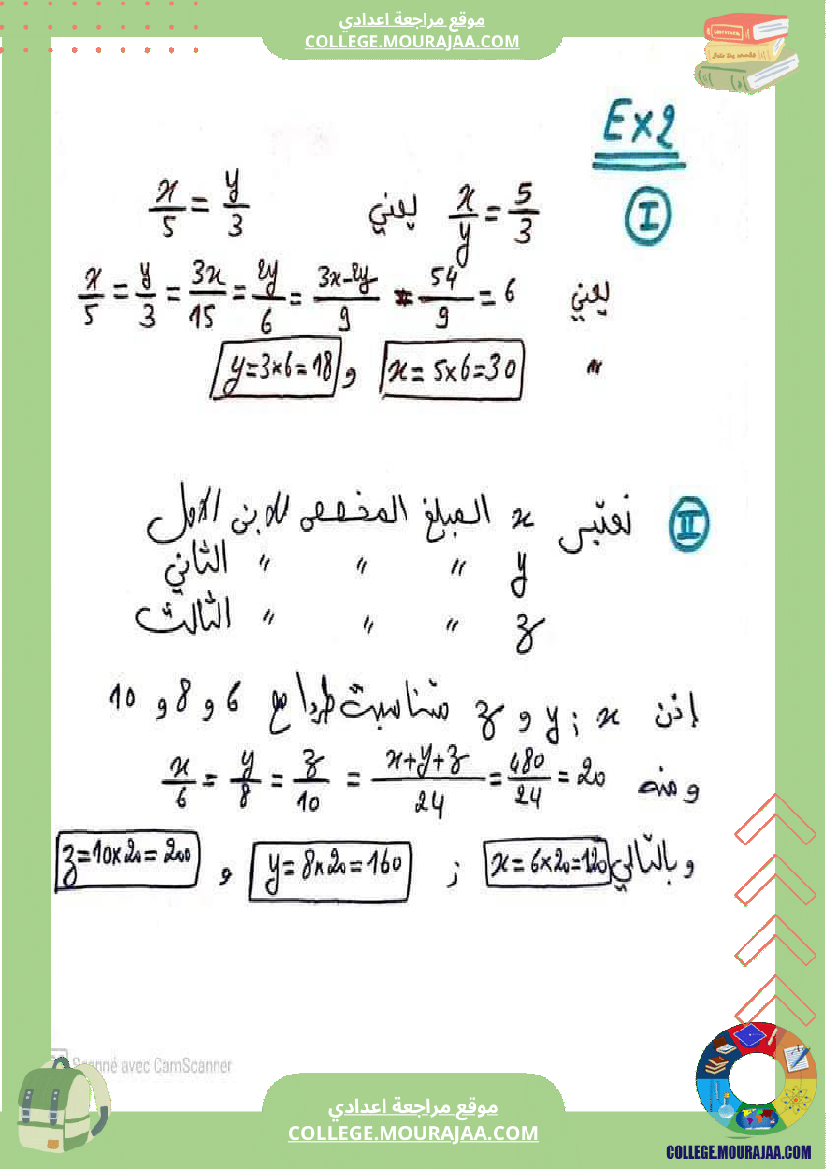 موقع مراجعة اعدادي
COLLEGE.MOURAJAA.COM
Ex2
I
x/y = 5/3 يعني x/5 = y/3
يعني x/5 = y/3 = 3x/15 = 2y/6 = 3x-2y/9 = 54/9 = 6
" x = 5×6 = 30 و y = 3×6 = 18
II نعتبر x المبلغ المخصص للابن الاول
y " " " الثاني
z " " " الثالث
إذن x ; y و z متناسبة طردا مع 6 و 8 و 10
ومنه x/6 = y/8 = z/10 = x+y+z/24 = 480/24 = 20
وبالتالي x = 6×20 = 120 ; y = 8×20 = 160 و z = 10×20 = 200
Scanné avec CamScanner
موقع مراجعة اعدادي
COLLEGE.MOURAJAA.COM
COLLEGE.MOURAJAA.COM